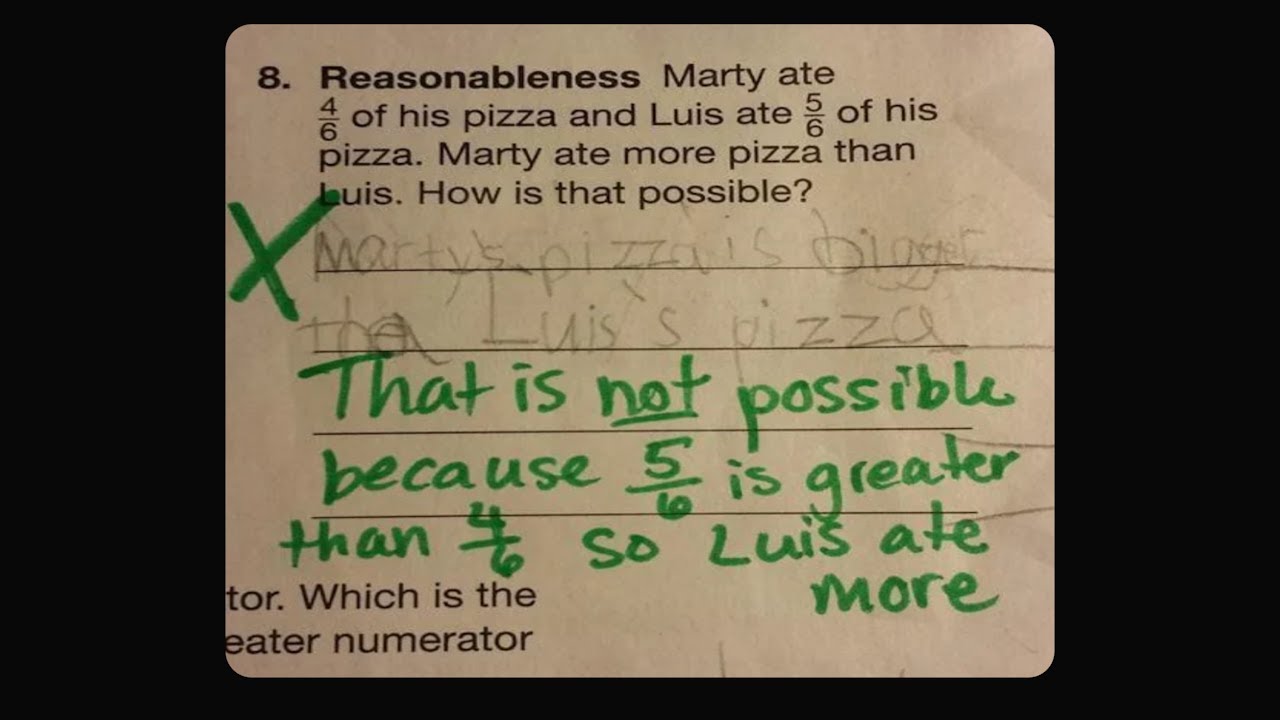 8. Reasonableness Marty ate
4/6 of his pizza and Luis ate 5/6 of his
pizza. Marty ate more pizza than
Luis. How is that possible?
X
Marty's pizza is bigger
tha Luis's pizza
That is not possible
because 5/6 is greater
than 4/6 so Luis ate
more
tor. Which is the
eater numerator